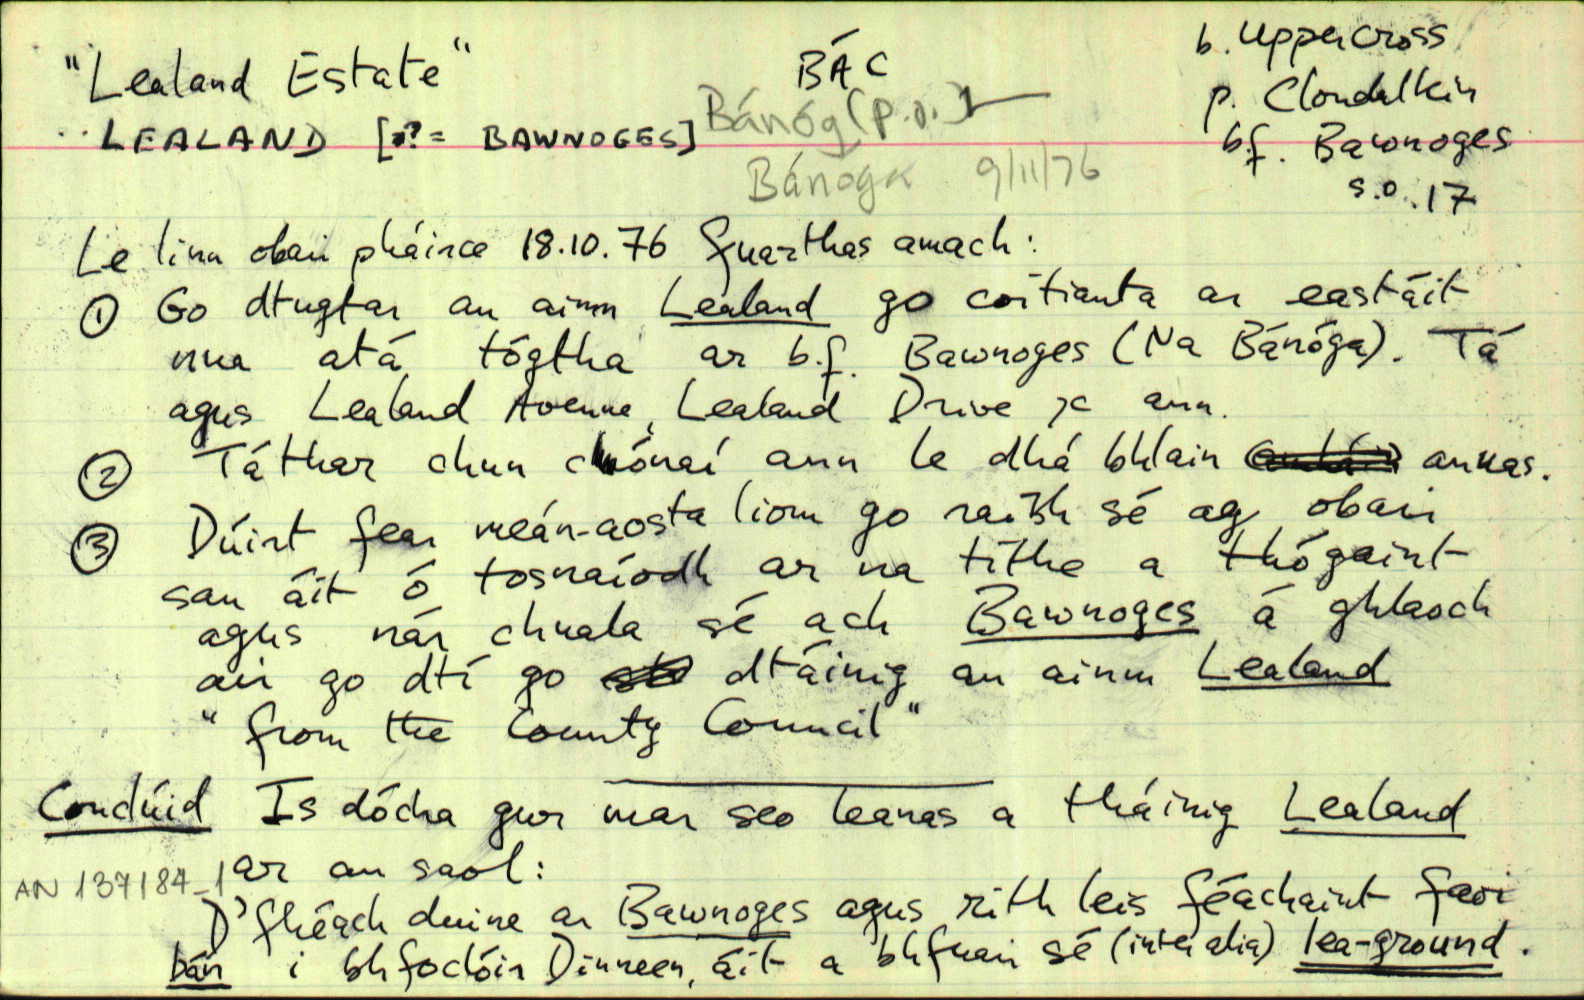 "Lealand Estate"
BÁC
b. Uppercross
LEALAND [?= BAWNOGES]
Bánóg (p.o.)
p. Clondalkin
Bánóga 9/11/76
b.f. Bawnoges
s.o. 17
Le linn obair pháirce 18.10.76 fuarthas amach:
① Go dtugtar an ainm Lealand go coitianta ar eastáit
nua atá tógtha ar b.f. Bawnoges (Na Bánóga). Tá
agus Lealand Avenue, Lealand Drive ⁊c ann.
② Táthar chun cónaí ann le dhá bhlain anuas.
③ Dúirt fear meán-aosta liom go raibh sé ag obair
san áit ó tosnaíodh ar na tithe a thógaint
agus nár chuala sé ach Bawnoges á ghlaoch
air go dtí go dtáinig an ainm Lealand
"from the County Council"
Conclúid Is dócha gur mar seo leanas a tháinig Lealand
ar an saol:
AN 137184_1
D'fhéach duine ar Bawnoges agus rith leis féachaint faoi
bán i bhfoclóir Dinneen, áit a bhfuair sé (inter alia) lea-ground.